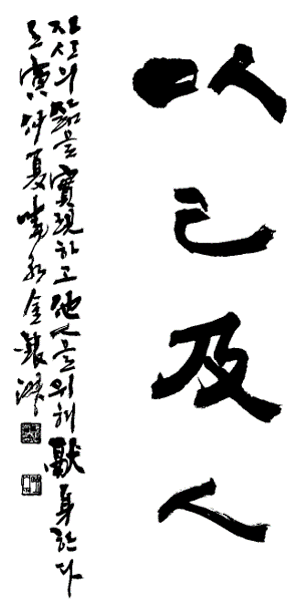 以己及人
자신의 삶을 實現하고 他人을 위해 獻身한다
寅仲夏 金